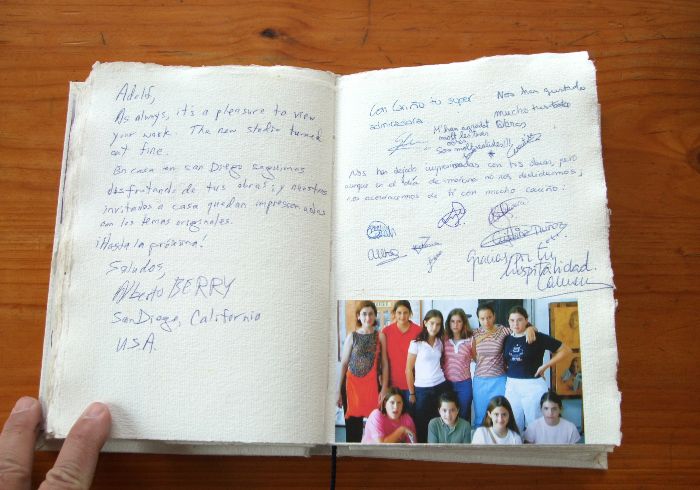 Adolf,
As always, it's a pleasure to view
your work. The new studio turned
out fine.
En casa en San Diego seguimos
disfrutando de tus obras; y nuestros
invitados a casa quedan impresionados
con los temas originales.
¡Hasta la próxima!
Saludos,
Alberto BERRY
San Diego, California
USA.
Con Cariño tu super
admiradora
Nos han gustado
mucho tus
Obras
M'han agradat
molt les teves
obres
Son molt
Nos has dejado impresionadas con tus obras, pero
aunque en el día de mañana no nos dediquemos,
nos acordaremos de tí con mucho cariño:
Gracias por tu
hospitalidad.
Carmen